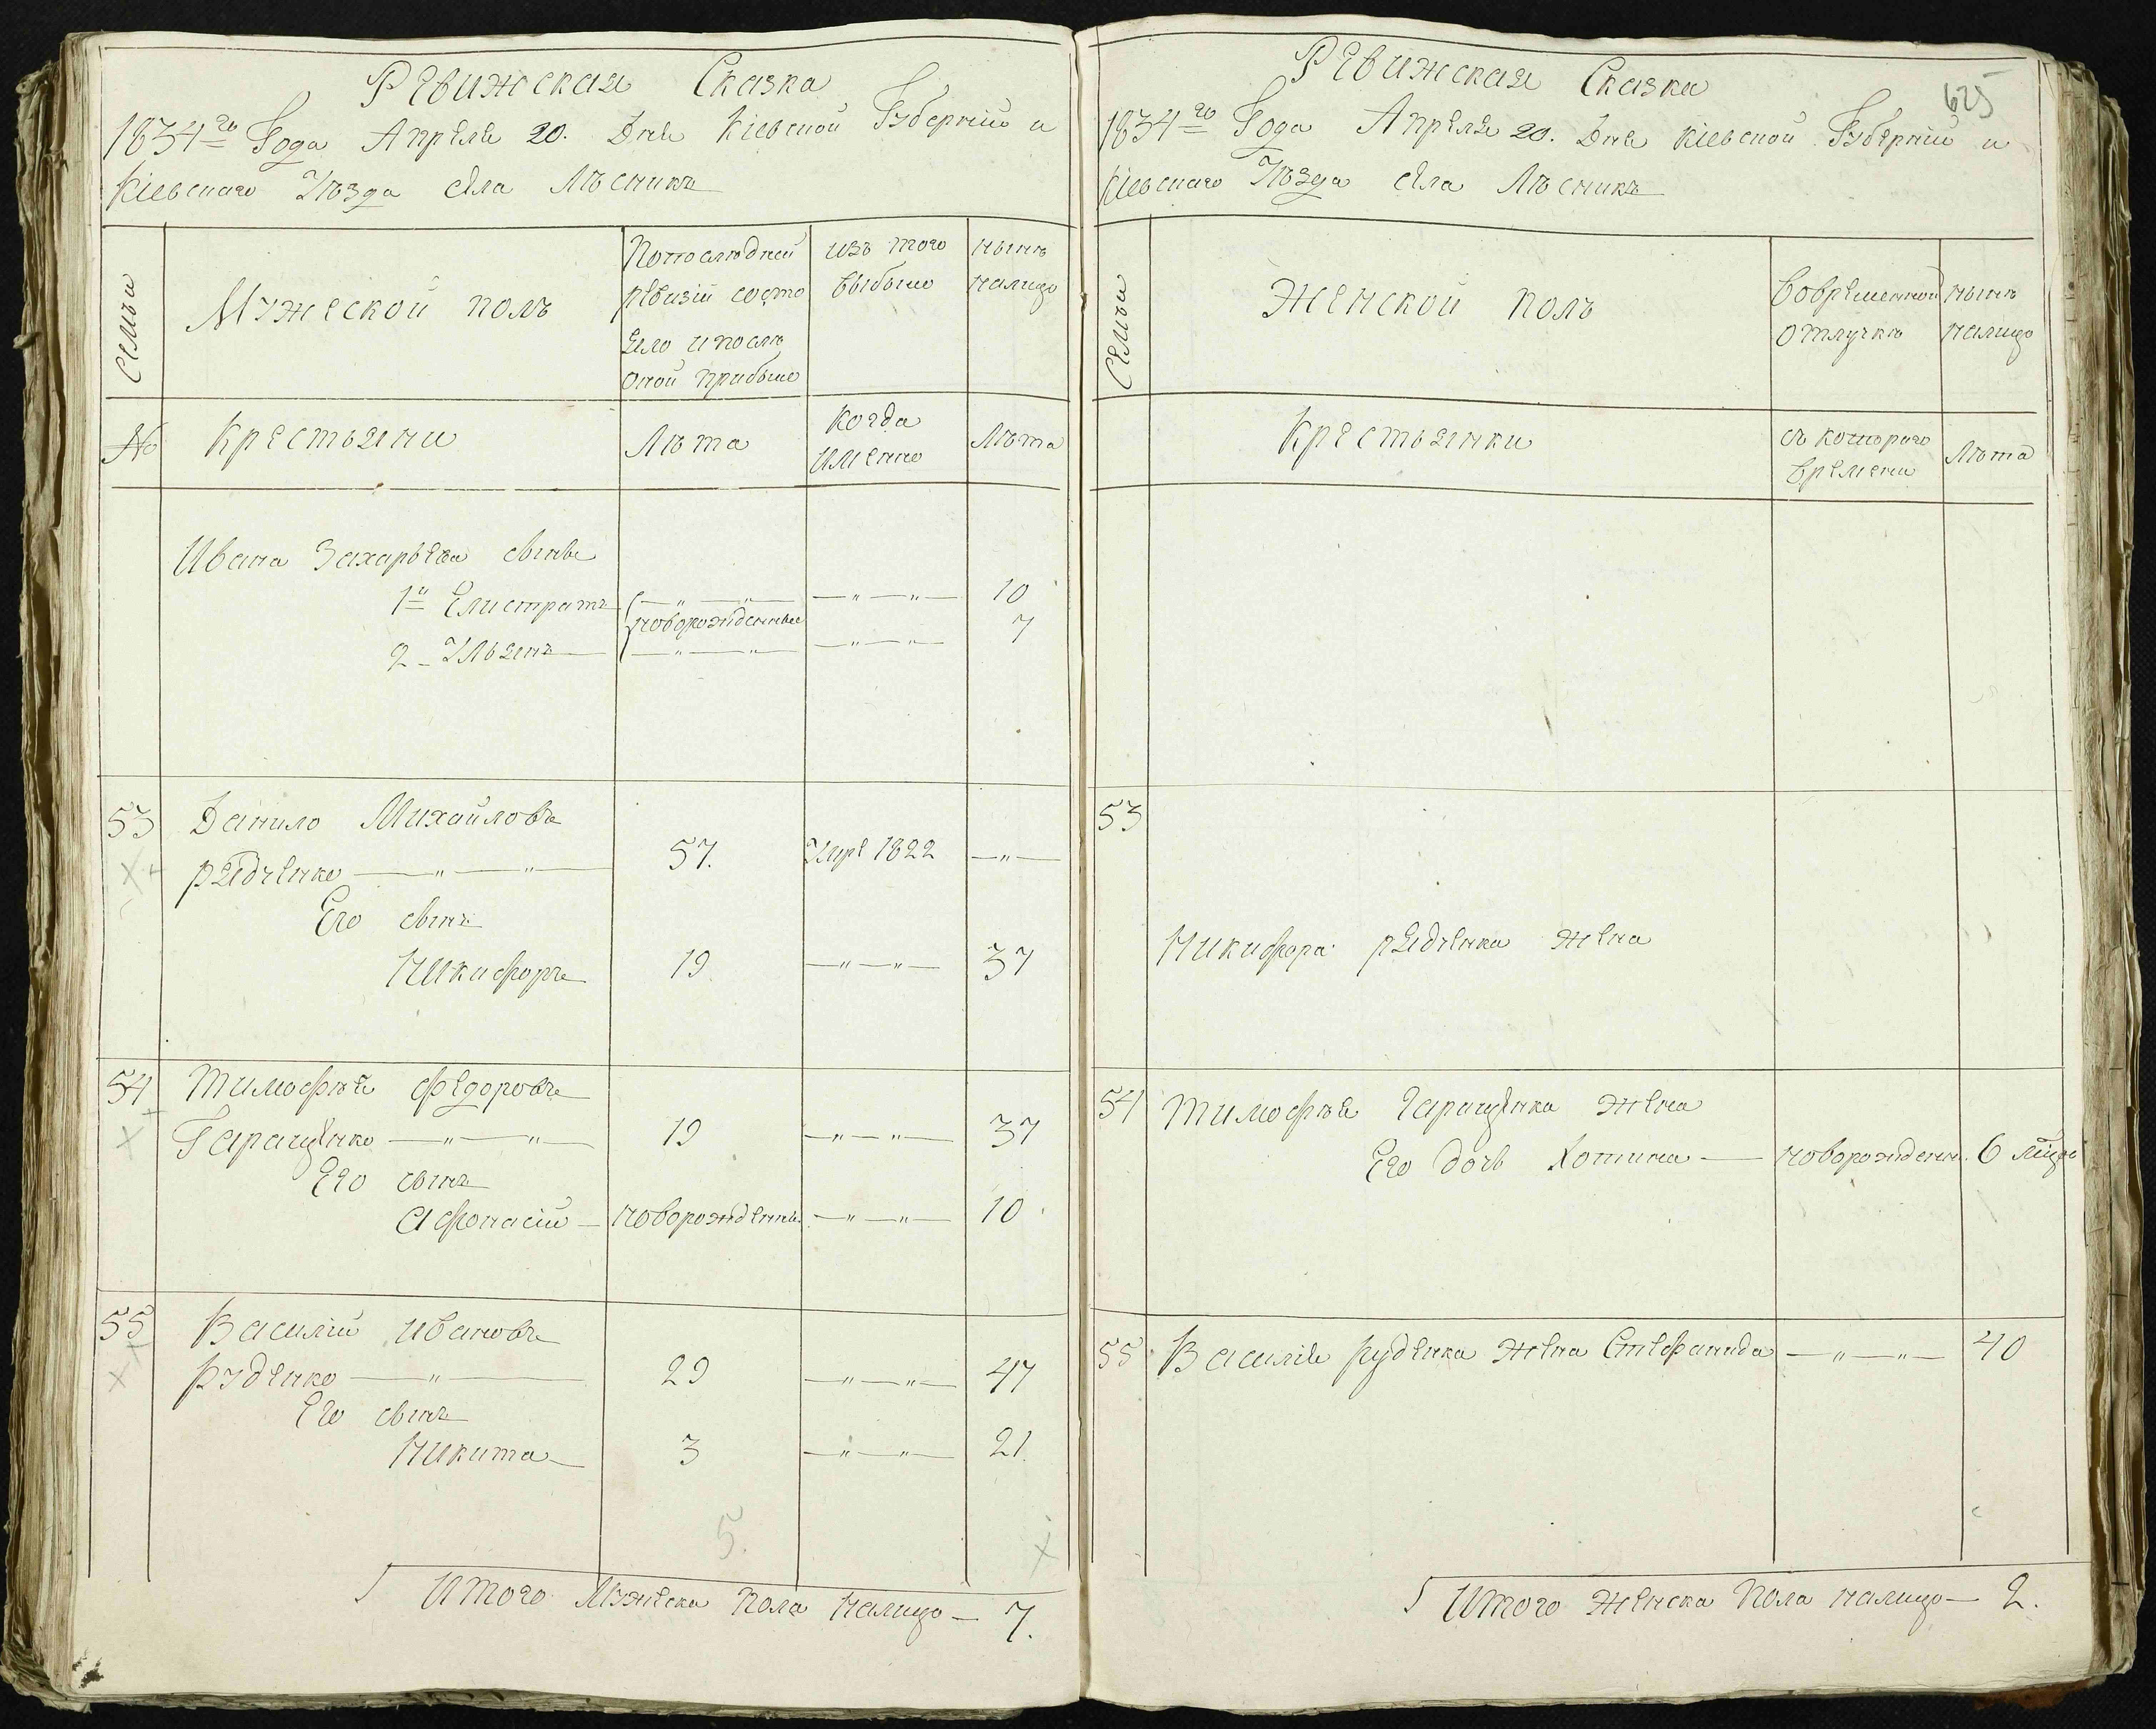 Ревижская Сказка
1834го Года Апреля 20. Дня Кіевской Губерніи и
Кіевскаго Уѣзда села Лѣсникъ
Семьи
Мужеской полъ
Попослѣдней
ревизіи состо
яло и послѣ
оной прибыло
изъ того
выбыло
нынѣ
налицо
№
Крестьяни
Лѣта
Когда
именно
Лѣта
Ивана Захарьева сынья
1й Елистратъ — " — " — — " — " — 10
новорожденные
2 - Ульянъ — " — " — — " — " — 7
53 Данило Михайловъ
Рядченко — " — " — 57. Умре 1822 — " —
Его сынъ
Никифоръ 19 — " — " — 37
54 Тимофѣй Федоровъ
Гаращенко — " — " — 19 — " — " — 37
Его сынъ
Афонасій — новорожденны — " — " — 10
55 Василій Ивановъ
Руденко — " — 29 — " — " — 47
Его сынъ
Никита 3 — " — " — 21.
5.
Итого Мужеска пола налицо — 7.
625
Ревижская Сказка
1834го Года Апреля 20. Дня Кіевской Губерніи и
Кіевскаго Уѣзда села Лѣсникъ
Семьи
Женской полъ
Вовременной
отлучкѣ
нынѣ
налицо
Крестьянки
съ котораго
времени
Лѣта
53
Никифора Рядченка жена
54 Тимофѣя Гаращенка жена
Его дочь Хотина — новорожденн. 6 мѣця
55 Василія Руденка жена Степанида — " — " — 40
Итого женска пола налицо — 2.